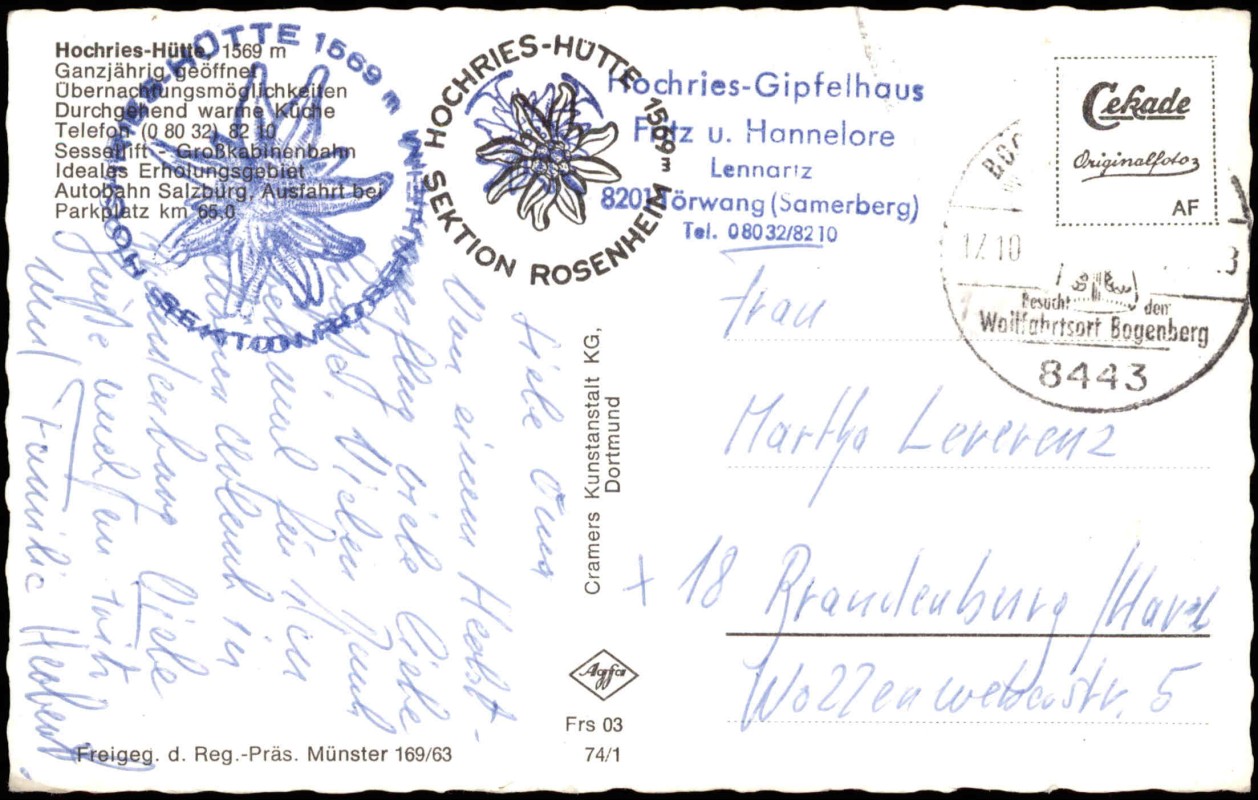 Hochries-Hütte, 1569 m
Ganzjährig geöffnet
Übernachtungsmöglichkeiten
Durchgehend warme Küche
Telefon (0 80 32) 82 10
Sessellift - Großkabinenbahn
Ideales Erholungsgebiet
Autobahn Salzburg, Ausfahrt bei
Parkplatz km 65,0
HOCHRIES-HÜTTE 1569 m
SEKTION ROSENHEIM
HOCHRIES-HÜTTE 1569 m
SEKTION ROSENHEIM
Hochries-Gipfelhaus
u. Hannelore
Lennartz
8201 Törwang (Samerberg)
Tel. 08032/8210
Cekade
Originalfoto
AF
17.10
Besucht den
Wallfahrtsort Bogenberg
8443
Liebe Oma
Von einem Herbst-
ausflug viele liebe
Grüße. Vielen Dank
für
in
Brandenburg. Liebe
Grüße auch an
und Familie
Cramers Kunstanstalt KG,
Dortmund
Agfa
Frs 03
74/1
Freigeg. d. Reg.-Präs. Münster 169/63
Frau
Martha Leverenz
+ 18 Brandenburg/Havel
Wollenweberstr. 5